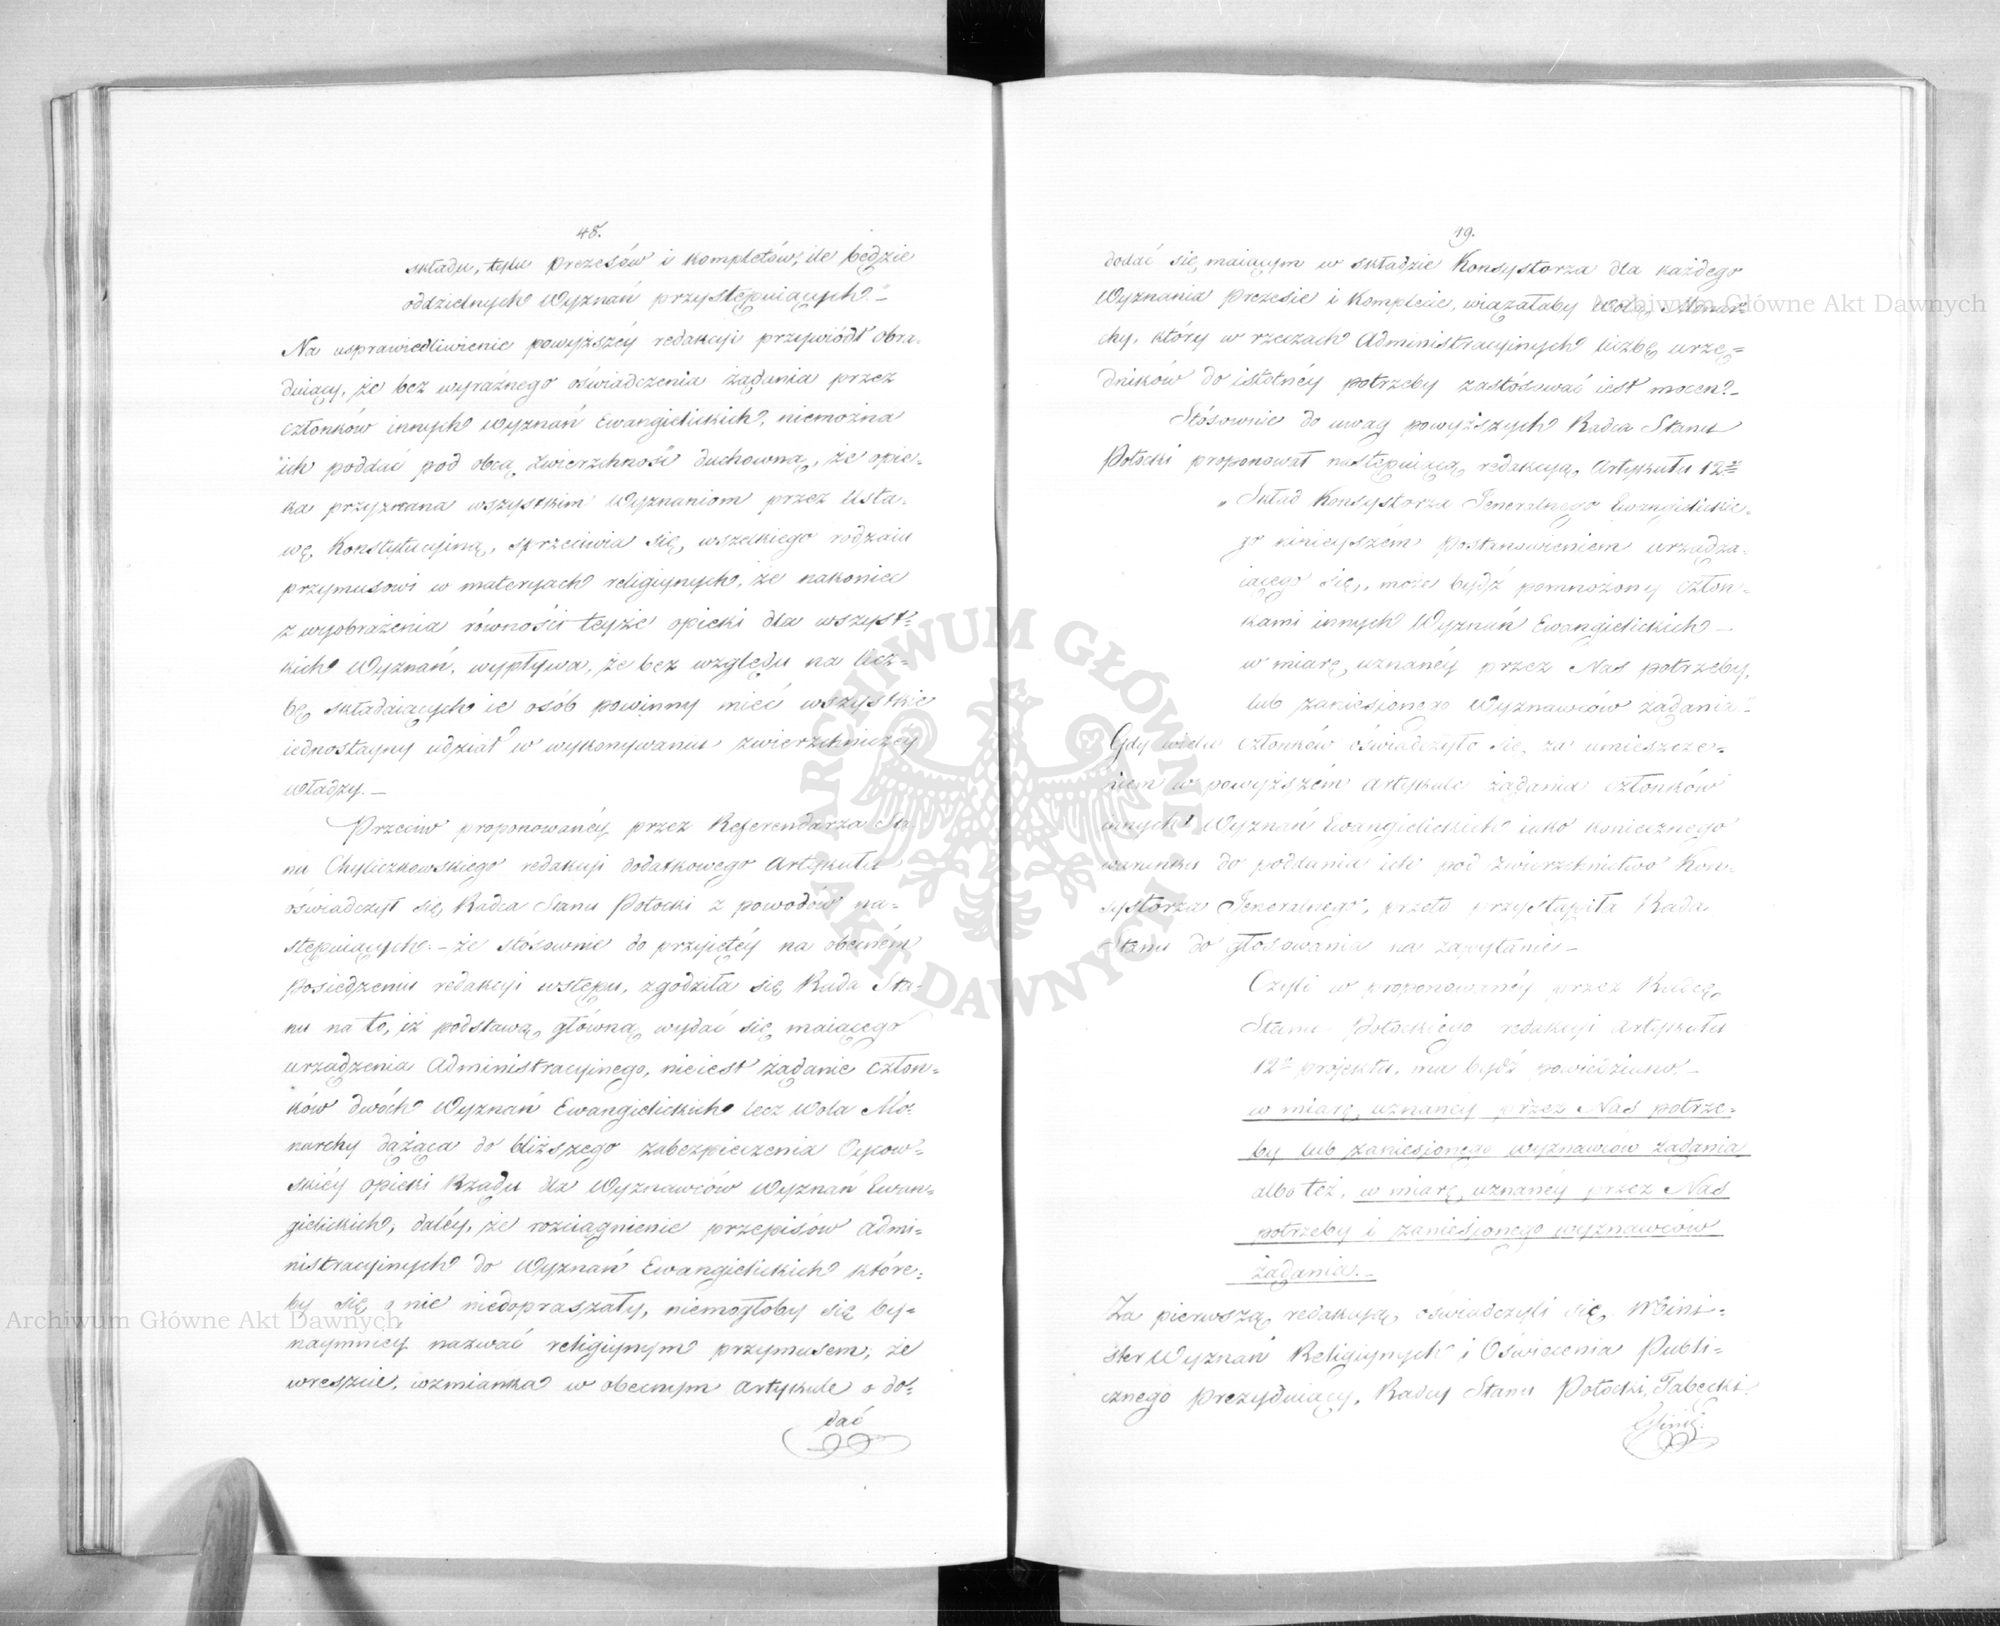 48.
składu, tylu Prezesów i kompletów, ile będzie
oddzielnych Wyznań przystępuiących." –
Na usprawiedliwienie powyższéy redakcyi przywiódł obra-
duiący, że bez wyraźnego oświadczenia żądania przez
członków innych Wyznań Ewangielickich, niemożna
ich poddać pod obcą zwierzchność duchowną, że opie-
ka przyznana wszystkim Wyznaniom przez Usta-
wę Konstytucyiną, sprzeciwia się, wszelkiego rodzaiu
przymusowi w materyach religiynych, że nakoniec
z wyobrażenia równości teyże opieki dla wszyst-
kich Wyznań, wypływa, że bez względu na licz-
bę składaiących ie osób powinny mieć wszystkie
iednostayny udział w wykonywaniu zwierzchniczéy
władzy. –
Przeciw proponowanéy przez Referendarza Sta
nu Chyliczkowskiego redakcyi dodatkowego Artykułu
oświadczył się Radca Stanu Potocki z powodów na-
stępuiących: – że stósownie do przyiętéy na obecném
posiedzeniu redakcyi wstępu, zgodziła się Rada Sta-
nu na to, iż podstawą główną wydać się maiącego
urządzenia Administracyinego, nieiest żądanie człon-
ków dwóch Wyznań Ewangielickich lecz Wola Mo-
narchy dążąca do bliższego zabezpieczenia Oycow-
skiéy opieki Rządu dla Wyznawców Wyznań Ewan-
gielickich, daléy, że rozciągnienie przepisów admi-
nistracyinych do Wyznań Ewangielickich które-
by się o nie niedopraszały, niemogłoby się by-
naymniéy nazwać religiynym przymusem, że
wreszcie, wzmianka w obecnym Artykule o do-
dać
49.
dodać się maiącym w składzie Konsystorza dla każdego
Wyznania Prezesie i Komplecie, wiązałaby Wolę Monar-
chy, który w rzeczach Administracyinych liczbę urzę-
dników do istotnéy potrzeby zastósować iest mocen. –
Stósownie do uwag powyższych Radca Stanu
Potocki proponował następuiącą redakcyą Artykułu 12go
„Skład Konsystorza Jeneralnego Ewangielickie-
go ninieyszém Postanowieniem urządza-
iącego się, może bydź pomnożony człon-
kami innych Wyznań Ewangielickich –
w miarę uznanéy przez Nas potrzeby,
lub zaniesionego Wyznawców żądania"
Gdy wielu członków oświadczyło się za umieszcze-
niem w powyższém Artykule żądania członków
innych Wyznań Ewangielickich iako koniecznego
warunku do poddania ich pod zwierzchnictwo Kon-
systorza Jeneralnego, przeto przystąpiła Rada
Stanu do głosowania na zapytanie –
Czyli w proponowanéy przez Radcę
Stanu Potockiego redakcyi Artykułu
12go projektu, ma bydź powiedziano. –
w miarę uznanéy przez Nas potrze-
by lub zaniesionego wyznawców żądania
albo też, w miarę uznanéy przez Nas
potrzeby i zaniesionego wyznawców
żądania. –
Za pierwszą redakcyą oświadczyli się Mini-
ster Wyznań Religiynych i Oświecenia Publi-
cznego Prezyduiący, Radcy Stanu Potocki, Tabęcki
Archiwum Główne Akt Dawnych
Archiwum Główne Akt Dawnych
ARCHIWUM GŁÓWNE
AKT DAWNYCH